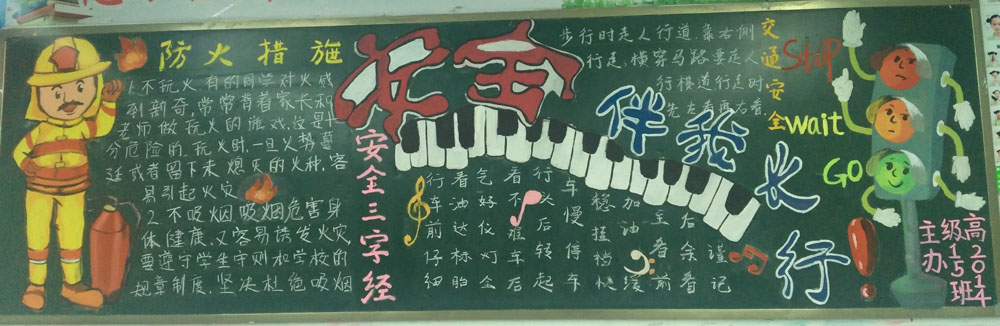 防火措施
1.不玩火,有的同学对火感
到新奇,常常背着家长和
老师做玩火的游戏,这是十
分危险的.玩火时,一旦火势蔓
延或者留下未熄灭的火种,容
易引起火灾.
2.不吸烟.吸烟危害身
体健康,又容易诱发火灾
要遵守学生守则和学校的
规章制度,坚决杜绝吸烟
安全
伴我长行!
安全三字经
行车前仔细
看油达标胎
气好仪灯全
看不准车后
行人后转起
车慢停车
稳挂档快
加油缓
全看前
后余看
谨记
步行时走人行道,靠右侧
行走,横穿马路要走人
行横道行走时,
先左看再右看.
交通安全
Stop
wait
GO
高2014
级15班
主办